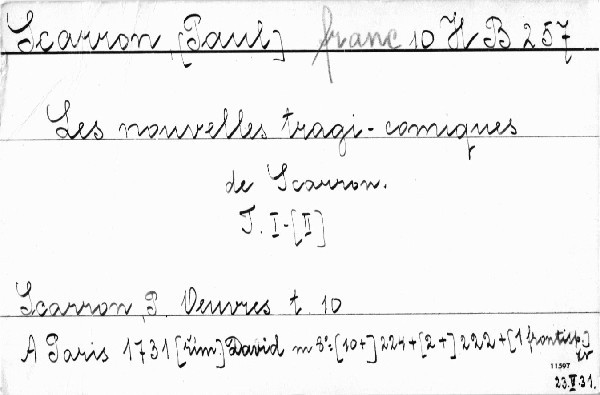 Scarron, [Paul] franc 10 H B 257
Les nouvelles tragi-comiques
de Scarron.
T. I-[II]
Scarron, P. Oeuvres t. 10
A Paris 1731 [rím] David m 8:[10+] 224+[2+] 222+[1 frontisp.]
11597
23.V.31.